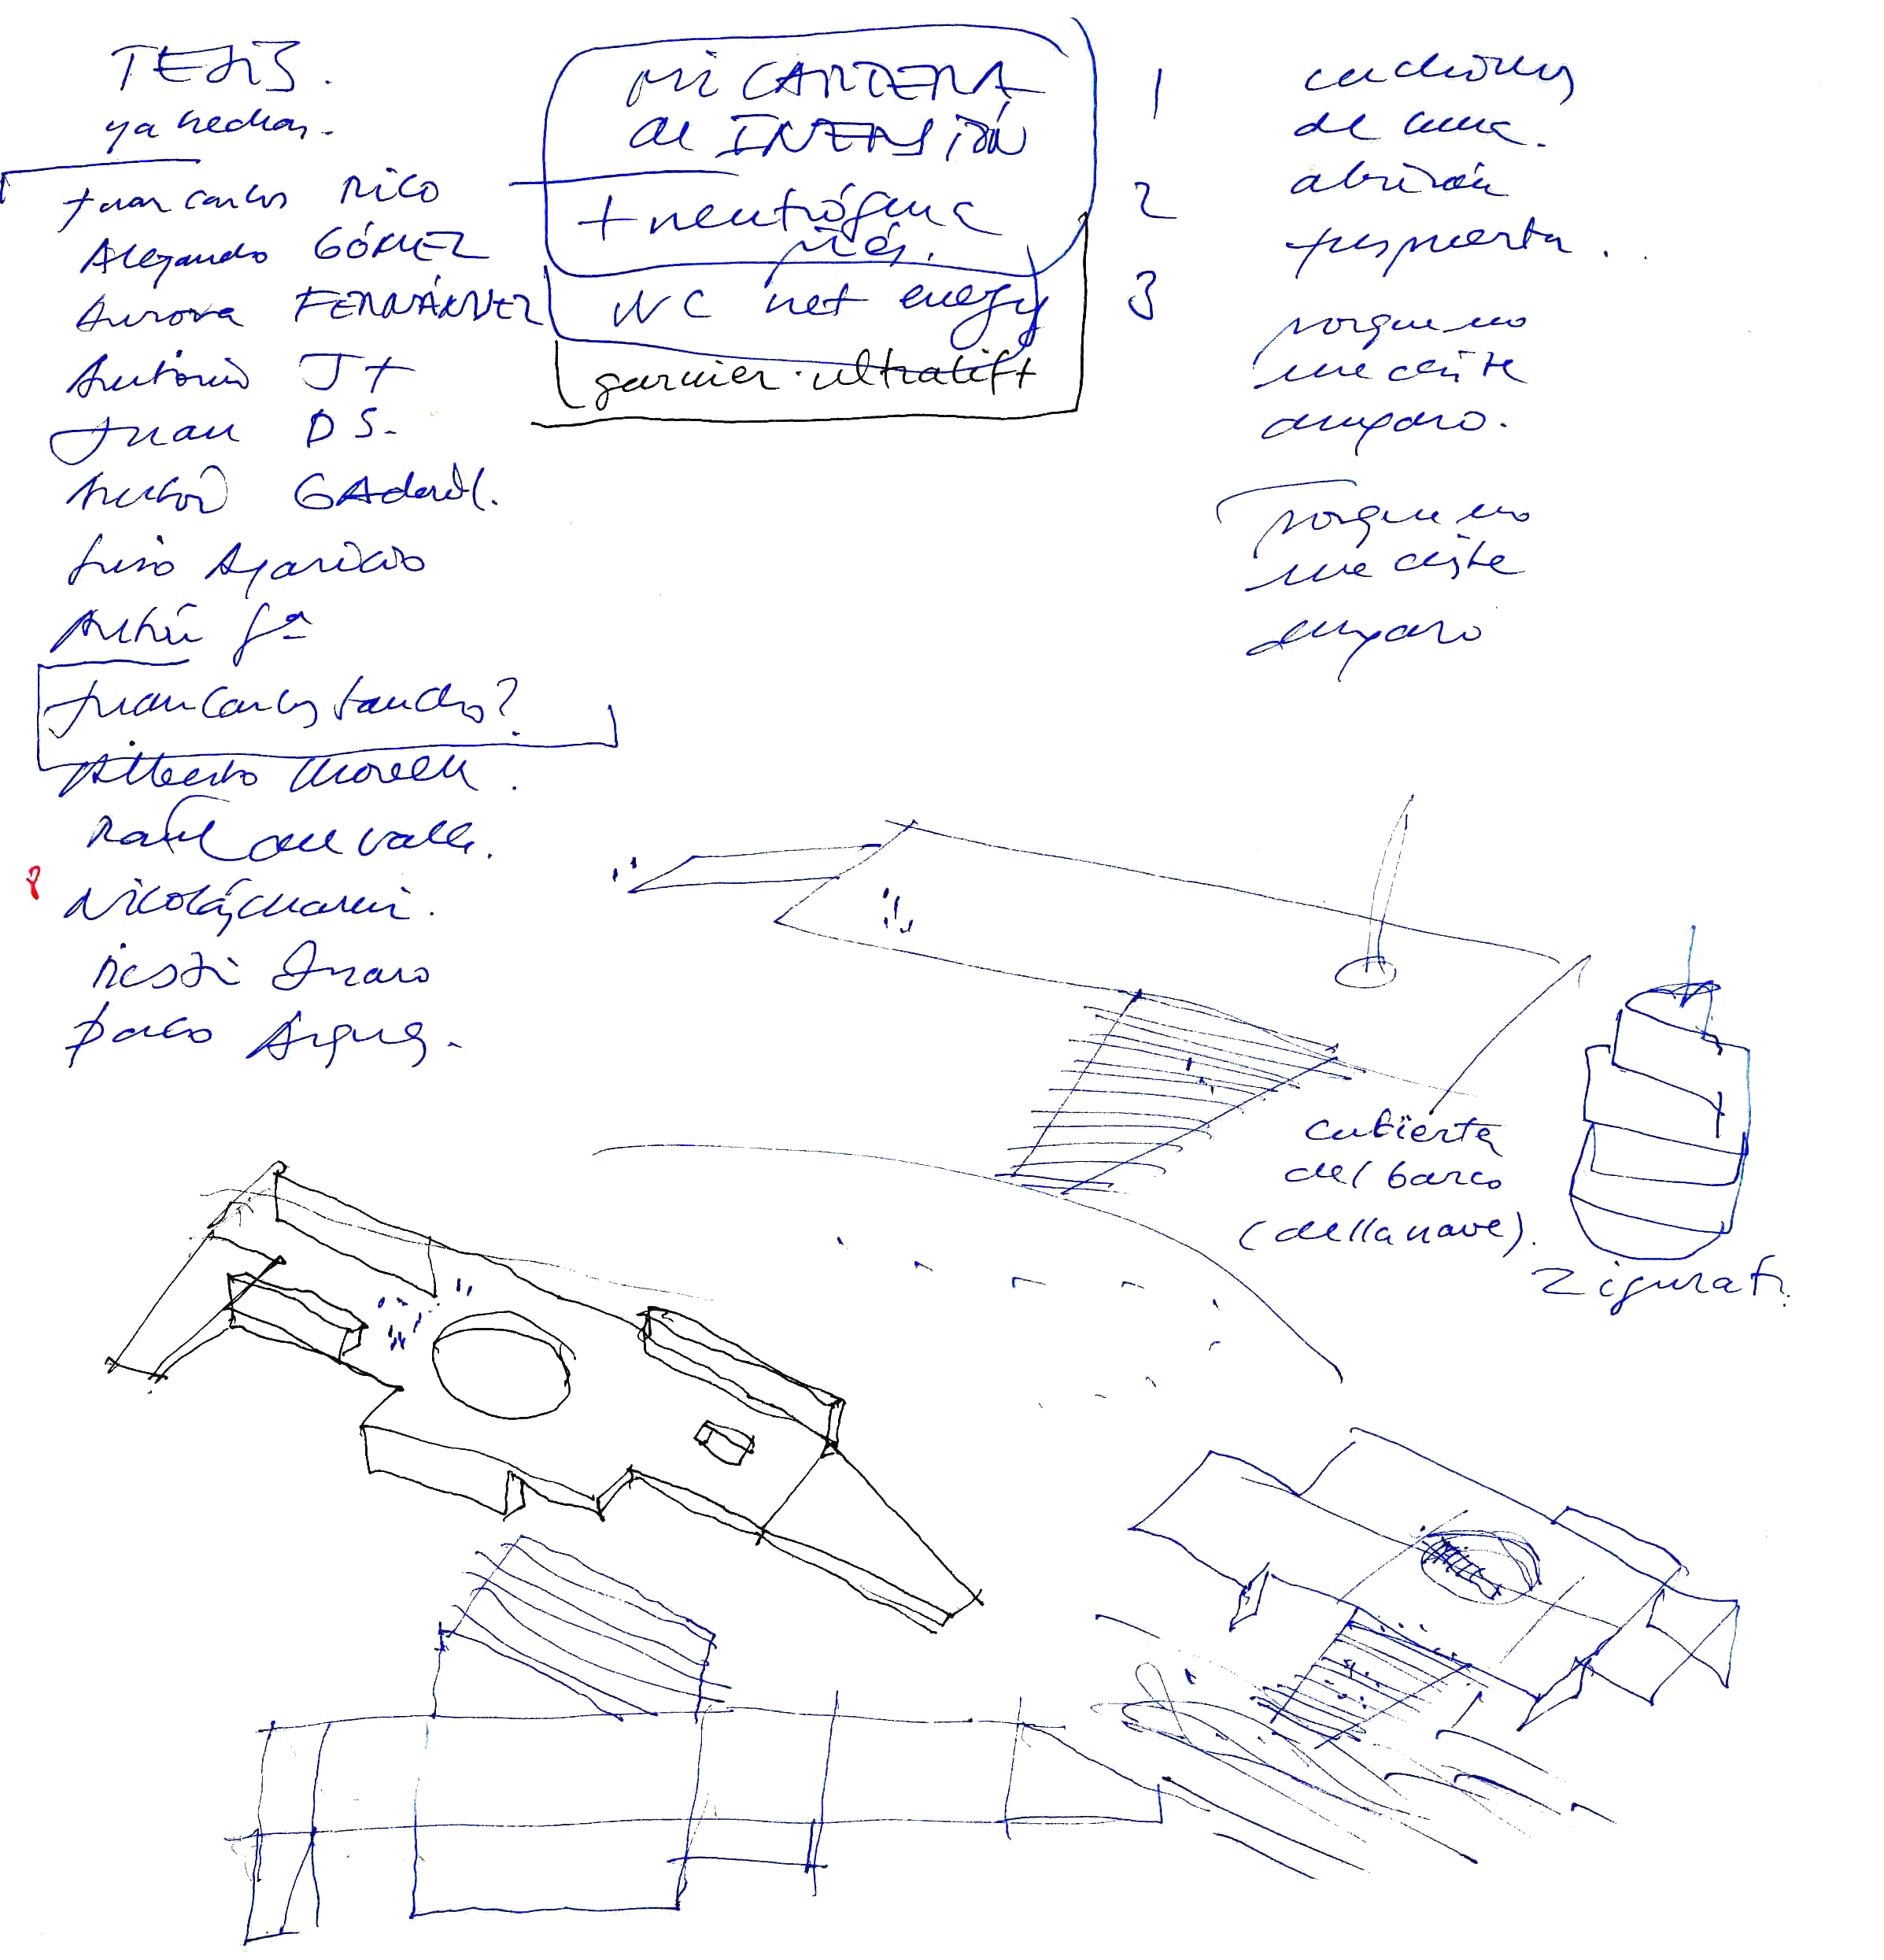 TESIS.
ya hechas.
Juan Carlos RICO
Alejandro GÓMEZ
Aurora FERNÁNDEZ
Antonio J+
Juan DS.
Luis Aparicio
Arturo Gª
Juan Carlos Sancho?
Alberto Morell.
Raúl del Valle.
Nicolás Maruri.
Paco Arques.
MI CARTERA
de INVERSIÓN
+ neutrógena
piés.
NC net energy
garnier · ultralift
1
2
3
de luna.
abrirán
tus puerta..
porque no
me diste
amparo.
porque no
me diste
amparo
cubierta
del barco
(della nave).
Zigurat.